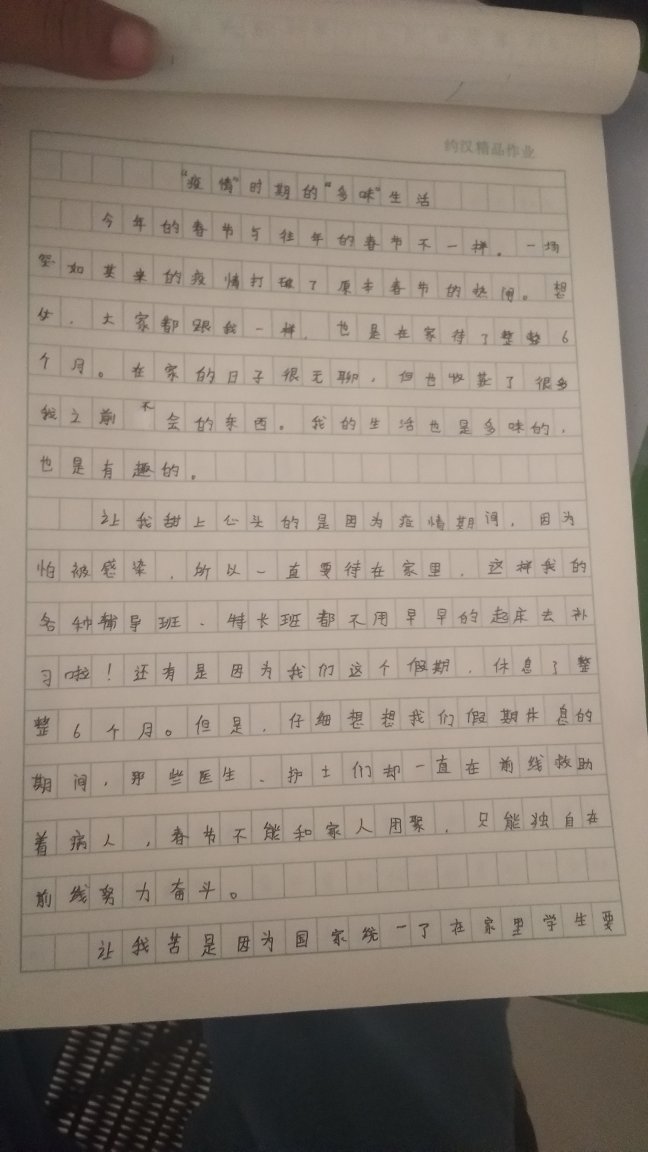 约汉精品作业
"疫情"时期的"多味"生活
今年的春节与往年的春节不一样。一场
如其来的疫情打破了原本春节的热闹。想
必,大家都跟我一样,也是在家待了整整6
个月。在家的日子很无聊,但也收获了很多
我之前不会的东西。我的生活也是多味的,
也是有趣的。
让我甜上心头的是因为疫情期间,因为
怕被感染,所以一直要待在家里,这样我的
各种辅导班、特长班都不用早早的起床去补
习啦!还有是因为我们这个假期,休息了整
整6个月。但是,仔细想想我们假期休息的
期间,那些医生、护士们却一直在前线救助
着病人,春节不能和家人团聚,只能独自在
前线努力奋斗。
让我苦是因为国家统一了在家里学生要